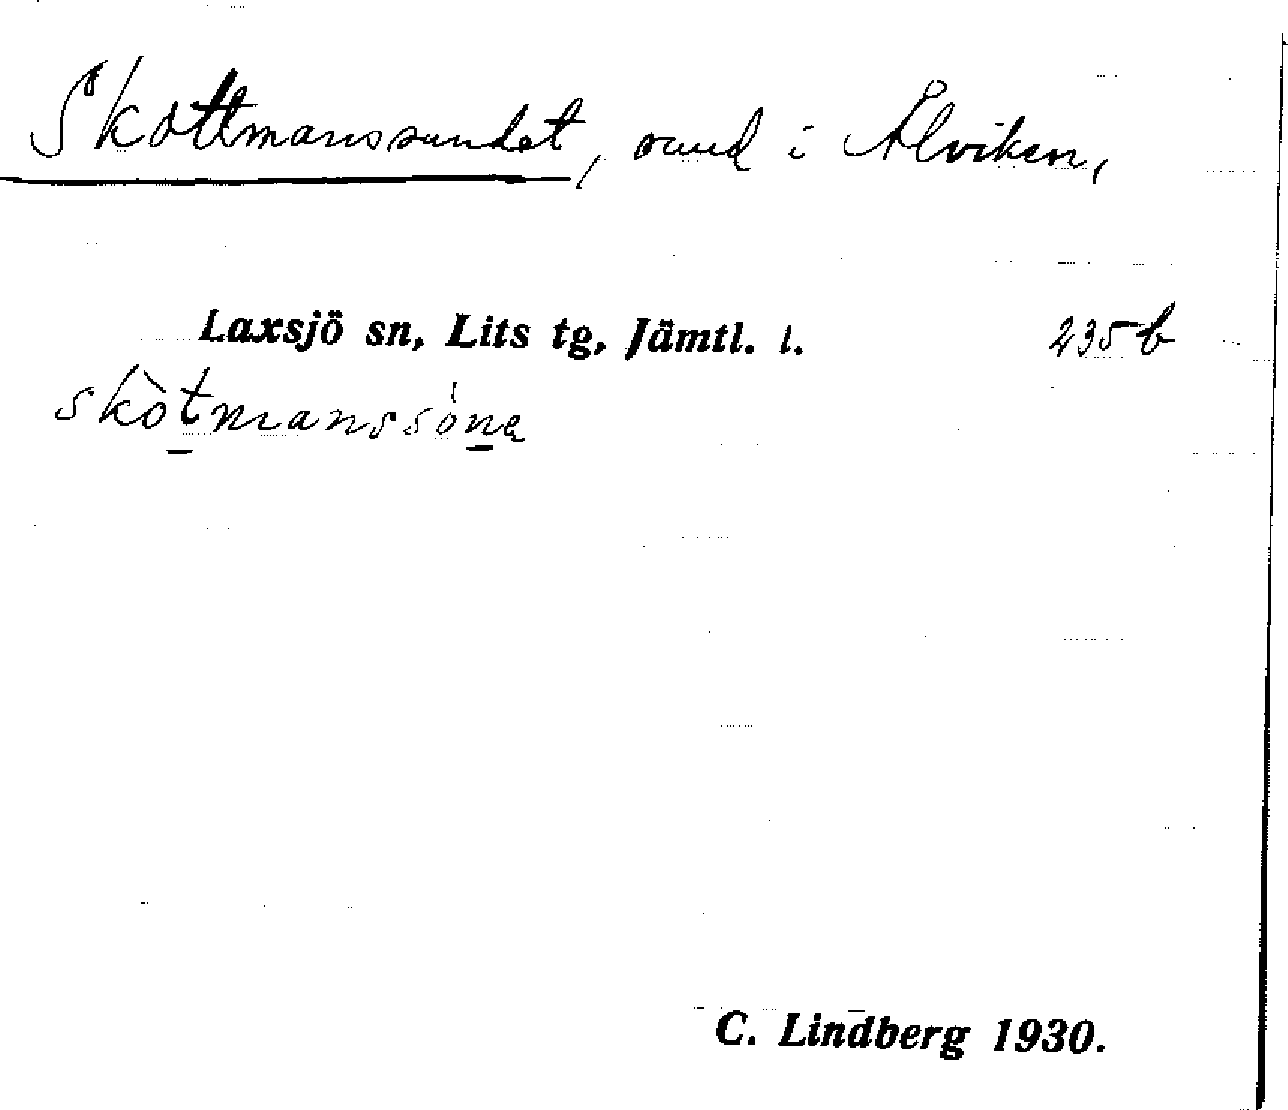 Skottmanssundet, sund i Ålviken,
Laxsjö sn, Lits tg, Jämtl. l. 235 b
skòt̲manssón̲a
C. Lindberg 1930.